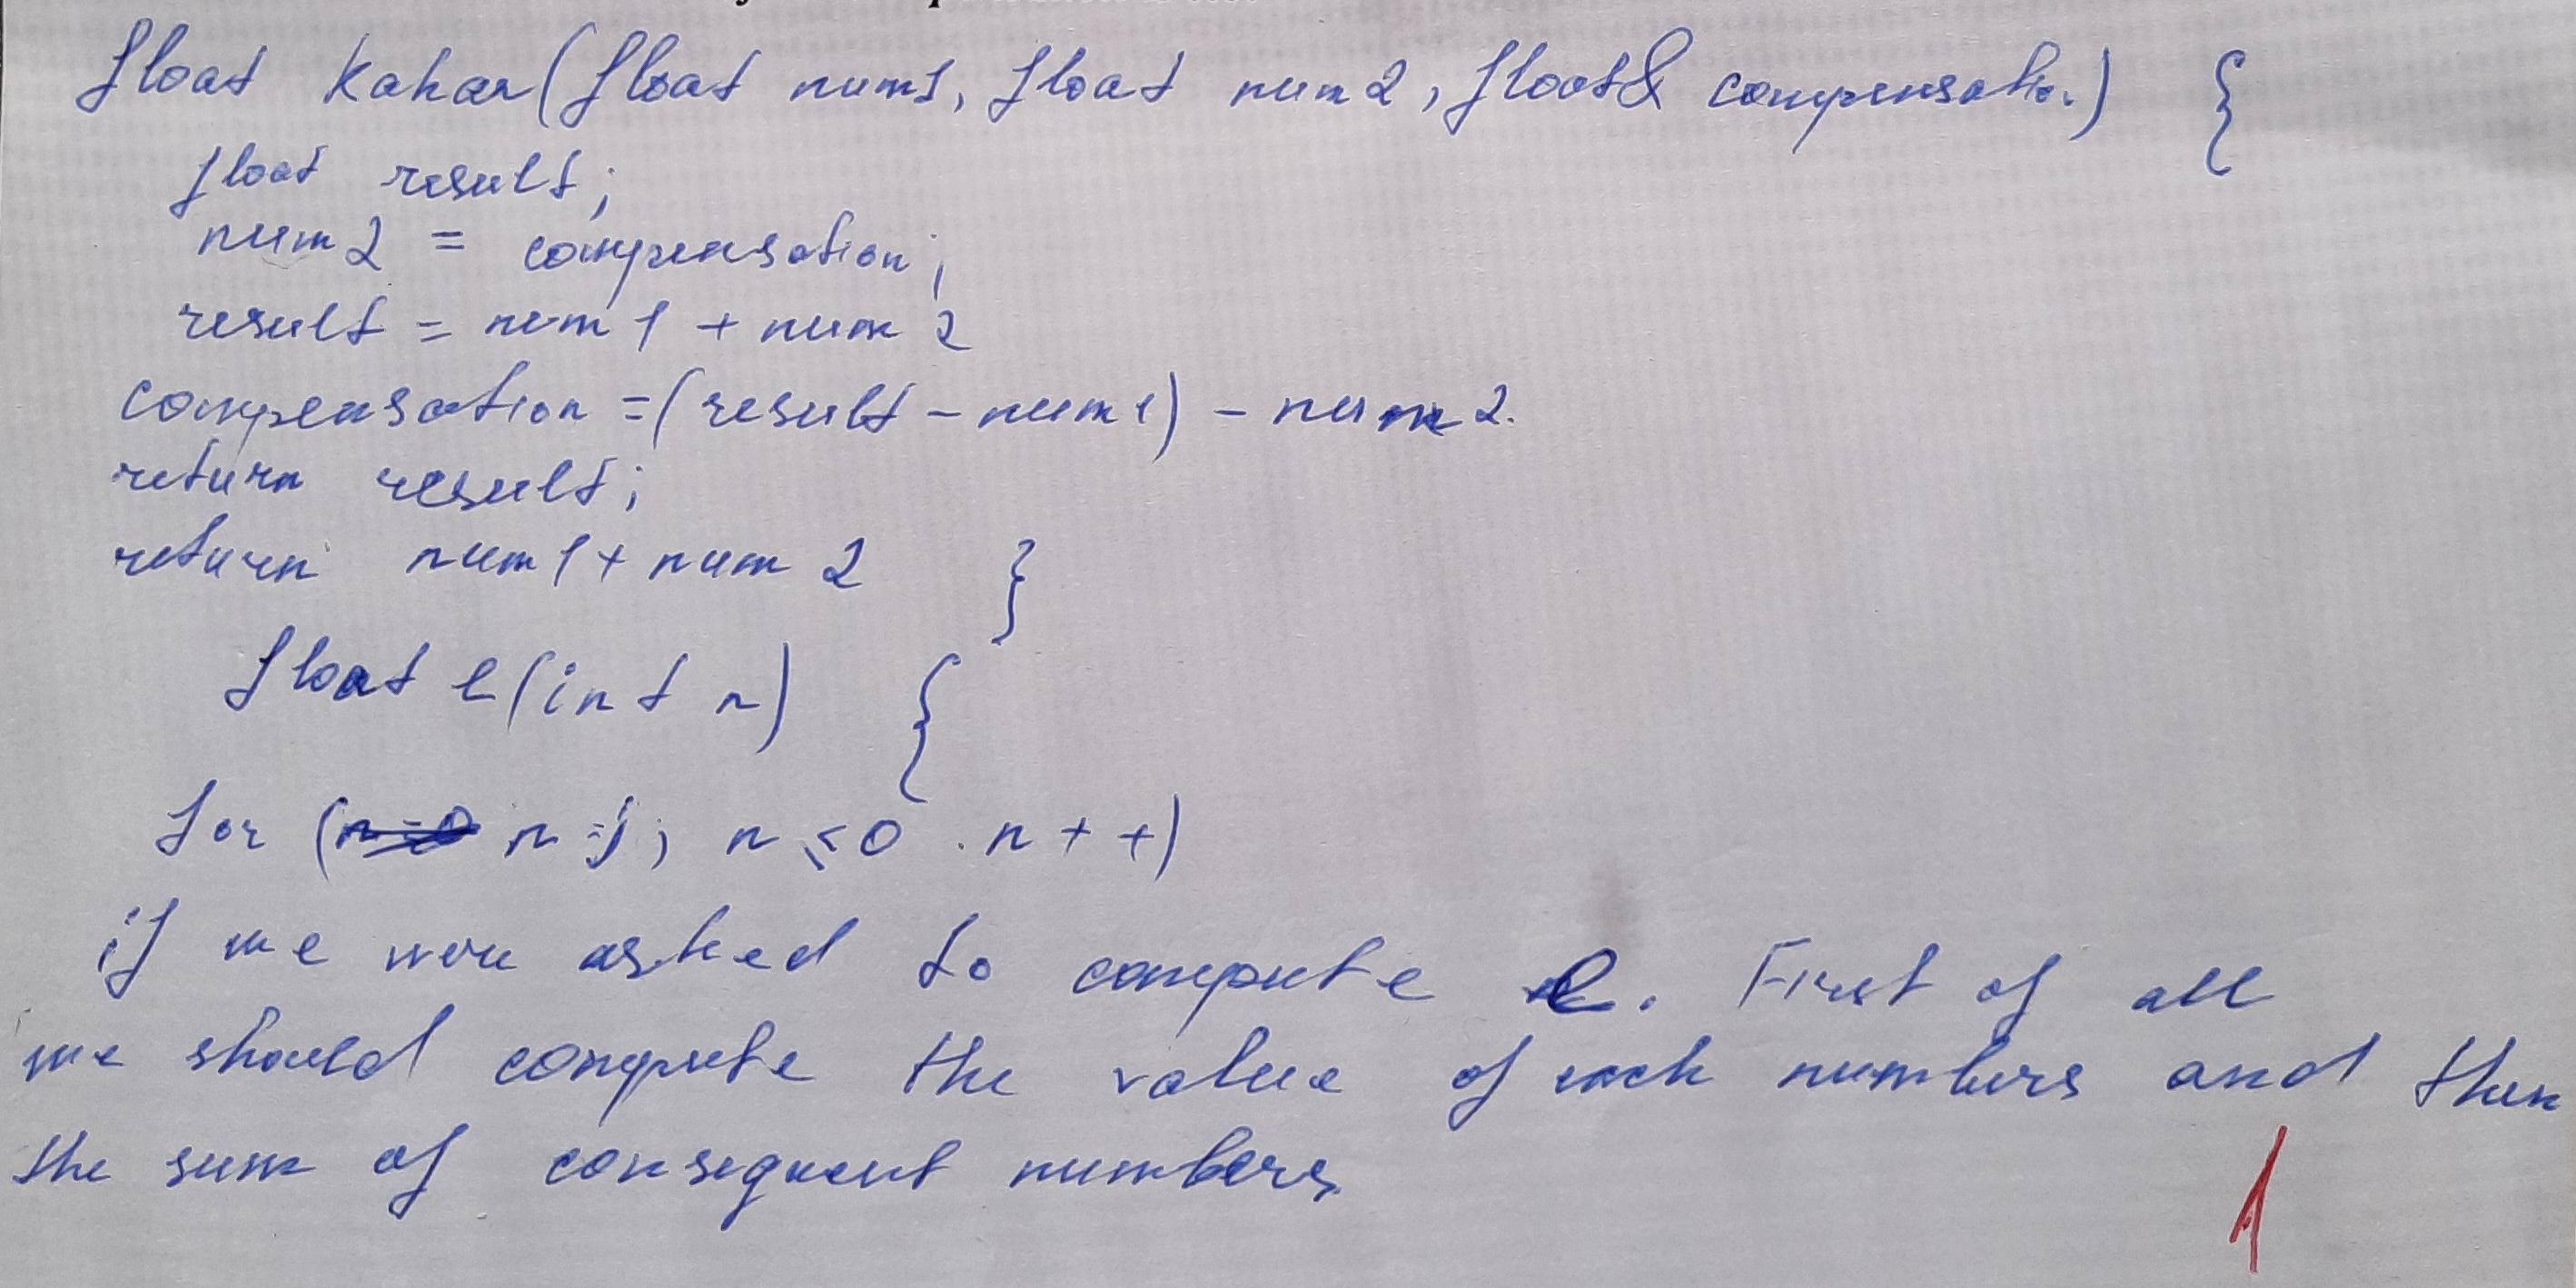 float Kahan(float num1, float num2, float& compensation) {
float result;
num2 = compensation;
result = num1 + num2
compensation = (result - num1) - num2.
return result;
return num1 + num2 }
float e(int n) {
for (n=0 n=j; n ≤ 0 . n++)
if we were asked to compute e. First of all
we should compute the value of each numbers and then
the sum of consequent numbers
1